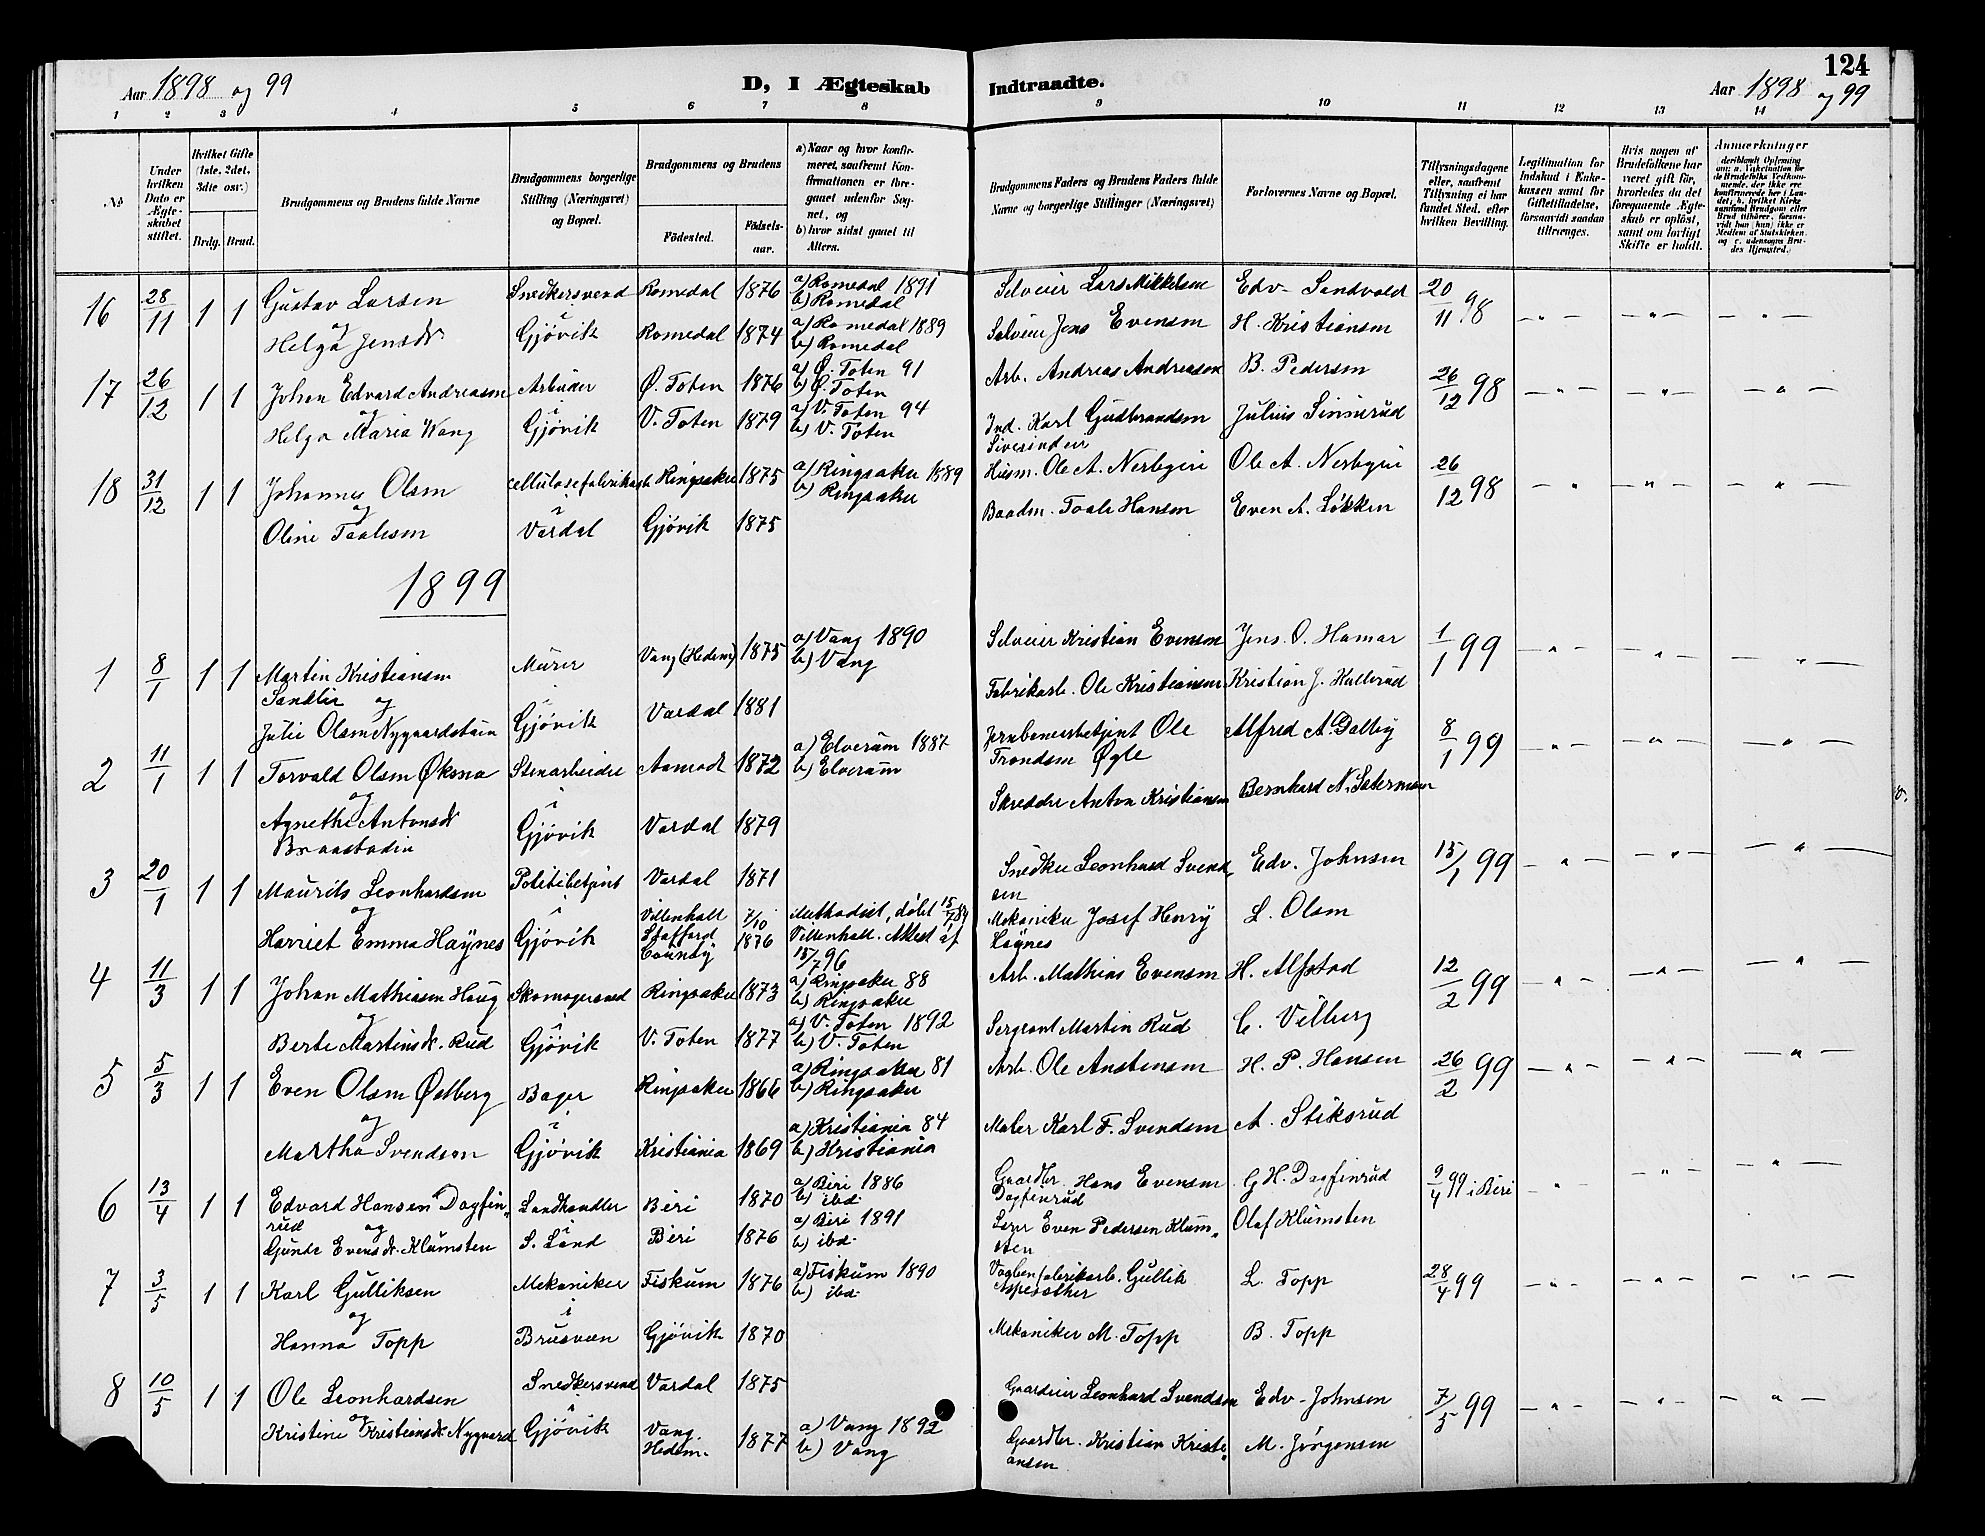 124
Aar 1898 og 99
D, I Ægteskab Indtraadte.
Aar 1898 og 99
1 2 3 4 5 6 7 8 9 10 11 12 13 14
№
Under hvilken Dato er Ægteskabet stiftet.
Hvilket Gifte (1ste, 2det, 3die osv.)
Brdg. Brud.
Brudgommens og Brudens fulde Navne
Brudgommens borgerlige Stilling (Næringsvei) og Bopæl.
Brudgommens og Brudens
Födested. Födselsaar.
a) Naar og hvor konfirmeret, saafremt Konfirmationen er foregaaet udenfor Sognet, og
b) hvor sidst gaaet til Alters.
Brudgommens Faders og Brudens Faders fulde Navne og borgerlige Stillinger (Næringsvei)
Forlovernes Navne og Bopæl.
Tillysningsdagene eller, saafremt Tillysning ei har fundet Sted, efter hvilken Bevilling.
Legitimation for Indskud i Enkekassen samt for Giftetilladelse, forsaavidt saadan tiltrænges.
Hvis nogen af Brudefolkene har været gift før, hvorledes da det foregaaende Ægteskab er opløst, samt om lovligt Skifte er holdt.
Anmærkninger
16 28/11 1 1 Gustav Larsen Snedkersvend Romedal 1876 a) Romedal 1891 b) Romedal Selveier Lars Mikkelsen Edv. Sandvold 20/11 98
og i
Helga Jensdr Gjövik Romedal 1874 a) Romedal 1889 b) Romedal Selveier Jens Evensen H. Kristiansen
17 26/12 1 1 Johan Edvard Andreasen Arbeider Ø. Toten 1876 a) Ø. Toten 91 b) Ø. Toten Arb. Andreas Andreasen B. Pedersen 26/12 98
og i
Helga Maria Wang Gjövik V. Toten 1879 a) V. Toten 94 b) V. Toten Ind. Karl Gudbrandsen Julius Sinnerud
18 31/12 1 1 Johannes Olsen cellulosefabrikarb. Ringsaker 1875 a) Ringsaker 1889 b) Ringsaker Husm. Ole A. Nerbyeie Ole A. Nerbyeie 26/12 98
og i
Oline Taalesen Vardal Gjövik 1875 Baadm. Taale Hansen Even A. Løkken
1899
1 8/1 1 1 Martin Kristiansen Sandlie og Murer Vang (Hedem) 1875 a) Vang 1890 b) Vang Selveier Kristian Evensen Jens. O. Hamar 1/1 99
Julie Olsen Nygaardstuen Gjövik Vardal 1881 Fabrikarb. Ole Kristiansen Kristian J. Hallerud
2 11/1 1 1 Torvald Olsen Øksna Stenarbeider Aamodt 1872 a) Elverum 1887 b) Elverum Jernbanebetjent Ole Trondsen Øgle Alfred A. Dalby 8/1 99
og i
Agnethe Antonsdr Braastadin Gjövik Vardal 1879 Skredder Anton Kristiansen Bernhard N. Sætermoen
3 20/1 1 1 Maurits Leonhardsen Politibetjent Vardal 1871 Snedker Leonhard Svendsen Edv. Johnsen 15/1 99
og i
Harriet Emma Haynes Gjövik Villenhall Stafford County 7/10 1876 Methodist, döbt Villenhall. Attest af 15/7 96 Mekaniker Josef Henry Haynes L. Olsen
4 11/3 1 1 Johan Mathiasen Haug Skomagersvend Ringsaker 1873 a) Ringsaker 88 b) Ringsaker Arb. Mathias Evensen H. Alfstad 12/2 99
og i
Berte Martinsdr. Rud Gjövik V. Toten 1877 a) V. Toten 1892 b) V. Toten Sergeant Martin Rud C. Vilberg
5 5/3 1 1 Even Olsen Østberg Bager Ringsaker 1866 a) Ringsaker 81 b) Ringsaker Arb. Ole Anstensen H. P. Hansen 26/2 99
og i
Martha Svendsen Gjövik Kristiania 1869 a) Kristiania 84 b) Kristiania Maler Karl F. Svendsen A. Stiksrud
6 13/4 1 1 Edvard Hansen Dagfinrud og Landhandler Biri 1870 a) Biri 1886 b) ibd. Gaardbr. Hans Evensen Dagfinrud G. H. Dagfinrud 9/4 99 i Biri
Gunde Evensdr. Klumsten S. Land Biri 1876 a) Biri 1891 b) ibd. Even Pedersen Klumsten Olaf Klumsten
7 3/5 1 1 Karl Gulliksen Mekaniker Fiskum 1876 a) Fiskum 1890 b) ibd. Gullik L. Topp 28/4 99
og i
Hanna Topp Brusveen Gjövik 1870 Mekaniker M. Topp B. Topp
8 10/5 1 1 Ole Leonhardsen Snedkersvend Vardal 1875 Gaardeier Leonhard Svendsen Edv. Johnsen 7/5 99
og i
Kristine Kristiansdr. Nygaard Gjövik Vang. Hedem. 1877 a) Vang 1892 b) Vang Gaardbr. Kristian Kristiansen M. Jörgensen